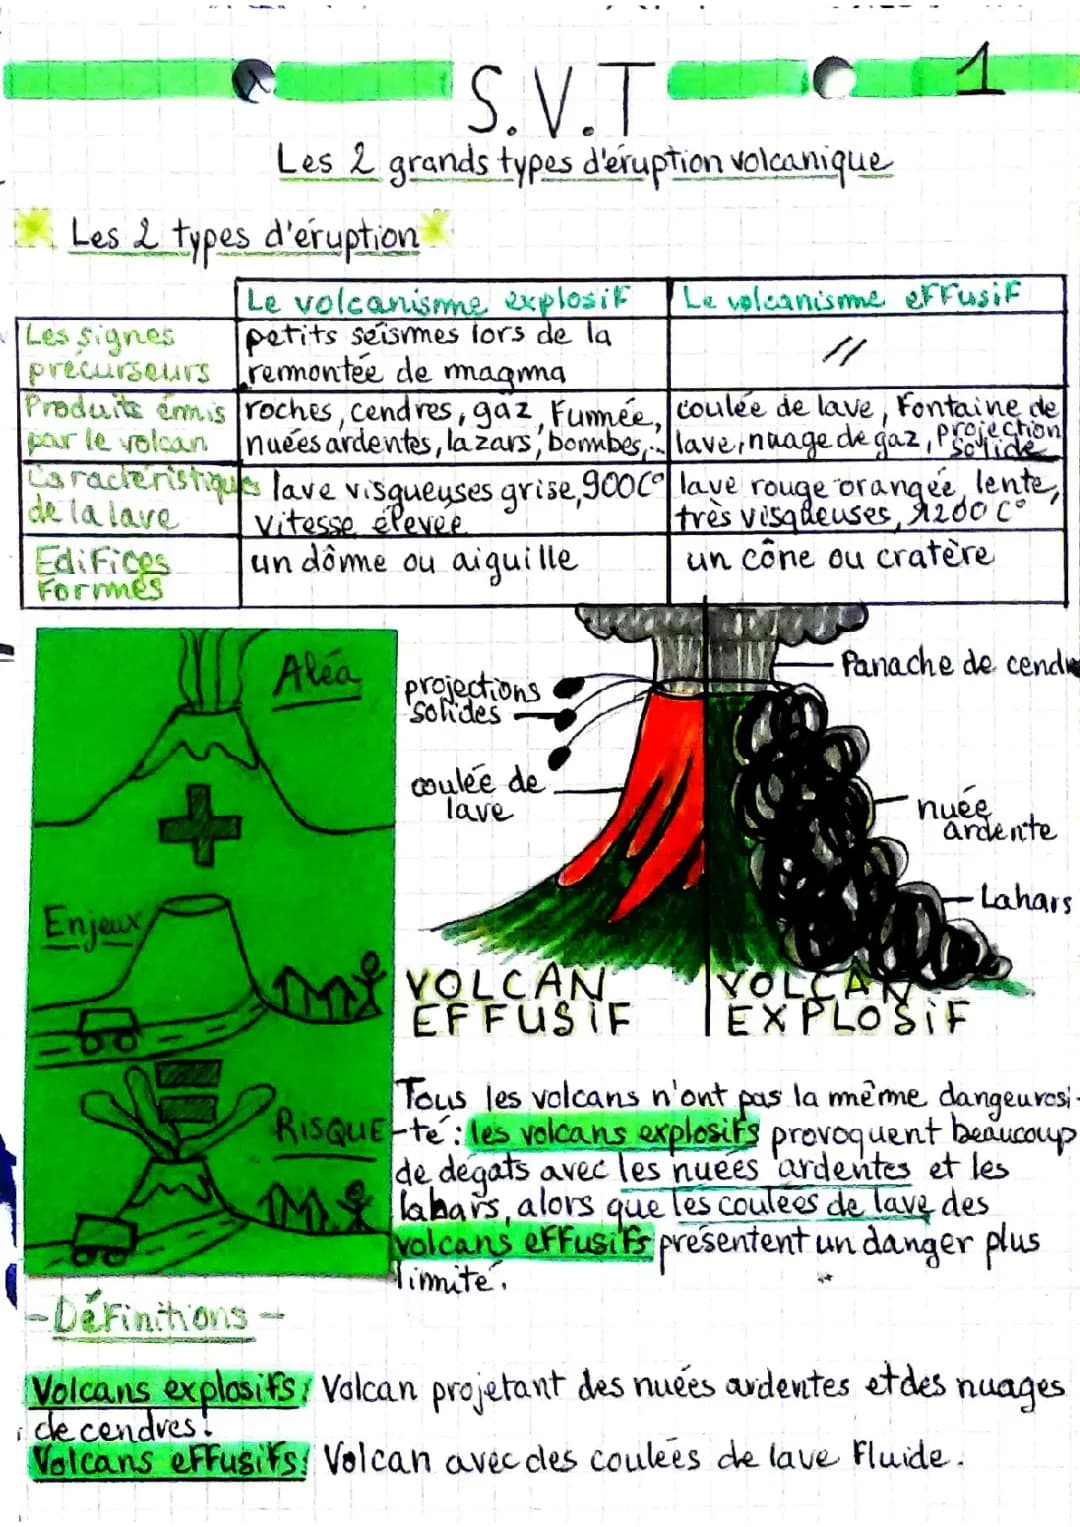 1
S.V.T
Les 2 grands types d'éruption volcanique
Les 2 types d'éruption
Le volcanisme explosif
Le volcanisme effusif
Les signes précurseurs
petits séismes lors de la
remontée de magma
//
Produits émis
par le volcan
roches, cendres, gaz, Fumée,
nuées ardentes, lazars, bombes,...
coulée de lave, Fontaine de
lave, nuage de gaz, projection
solide
Caractéristiques
de la lave
lave visqueuses grise, 900C°
vitesse élevée
lave rouge orangée, lente,
très visqueuses, 1200 C°
Edifices
Formés
un dôme ou aiguille
un cône ou cratère
Aléa
+
Enjeux
=
RISQUE
projections
solides
coulée de
lave
Panache de cendre
nuée
ardente
Lahars
VOLCAN
EFFUSIF
VOLCAN
EXPLOSIF
Tous les volcans n'ont pas la même dangeurosi-
-té : les volcans explosifs provoquent beaucoup
de dégats avec les nuées ardentes et les
lahars, alors que les coulées de lave des
volcans effusifs présentent un danger plus
limité.
- Définitions -
Volcans explosifs: Volcan projetant des nuées ardentes et des nuages
de cendres.
Volcans effusifs: Volcan avec des coulées de lave Fluide.